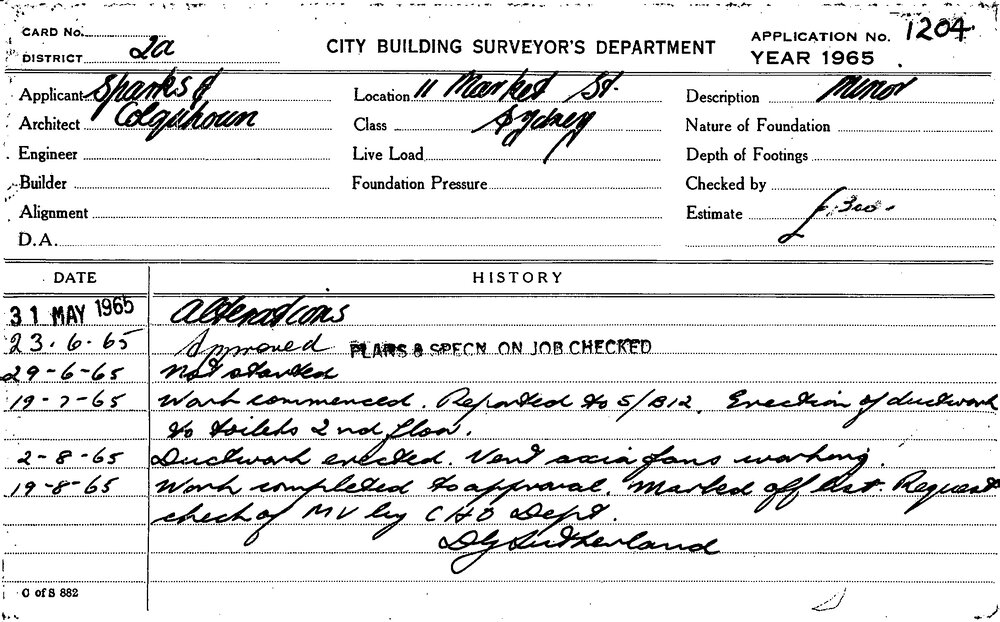 CARD No.
DISTRICT 2a
CITY BUILDING SURVEYOR'S DEPARTMENT
APPLICATION No. 1204
YEAR 1965
Applicant Sparks &
Location 11 Market St.
Description Minor
Architect Colquhoun
Class Sydney
Nature of Foundation
Engineer
Live Load
Depth of Footings
Builder
Foundation Pressure
Checked by
Alignment
Estimate £300.
D.A.
DATE HISTORY
31 MAY 1965 Alterations
23.6.65 Approved PLANS & SPECN. ON JOB CHECKED
29-6-65 Not started
19-7-65 Work commenced. Reported to S/B12. Erection of ductwork
to toilets 2nd floor.
2-8-65 Ductwork erected. Vent axia fans working.
19-8-65 Work completed to approval. Marked off list. Request
check of MV by CHO Dept.
DG Sutherland
C of S 882